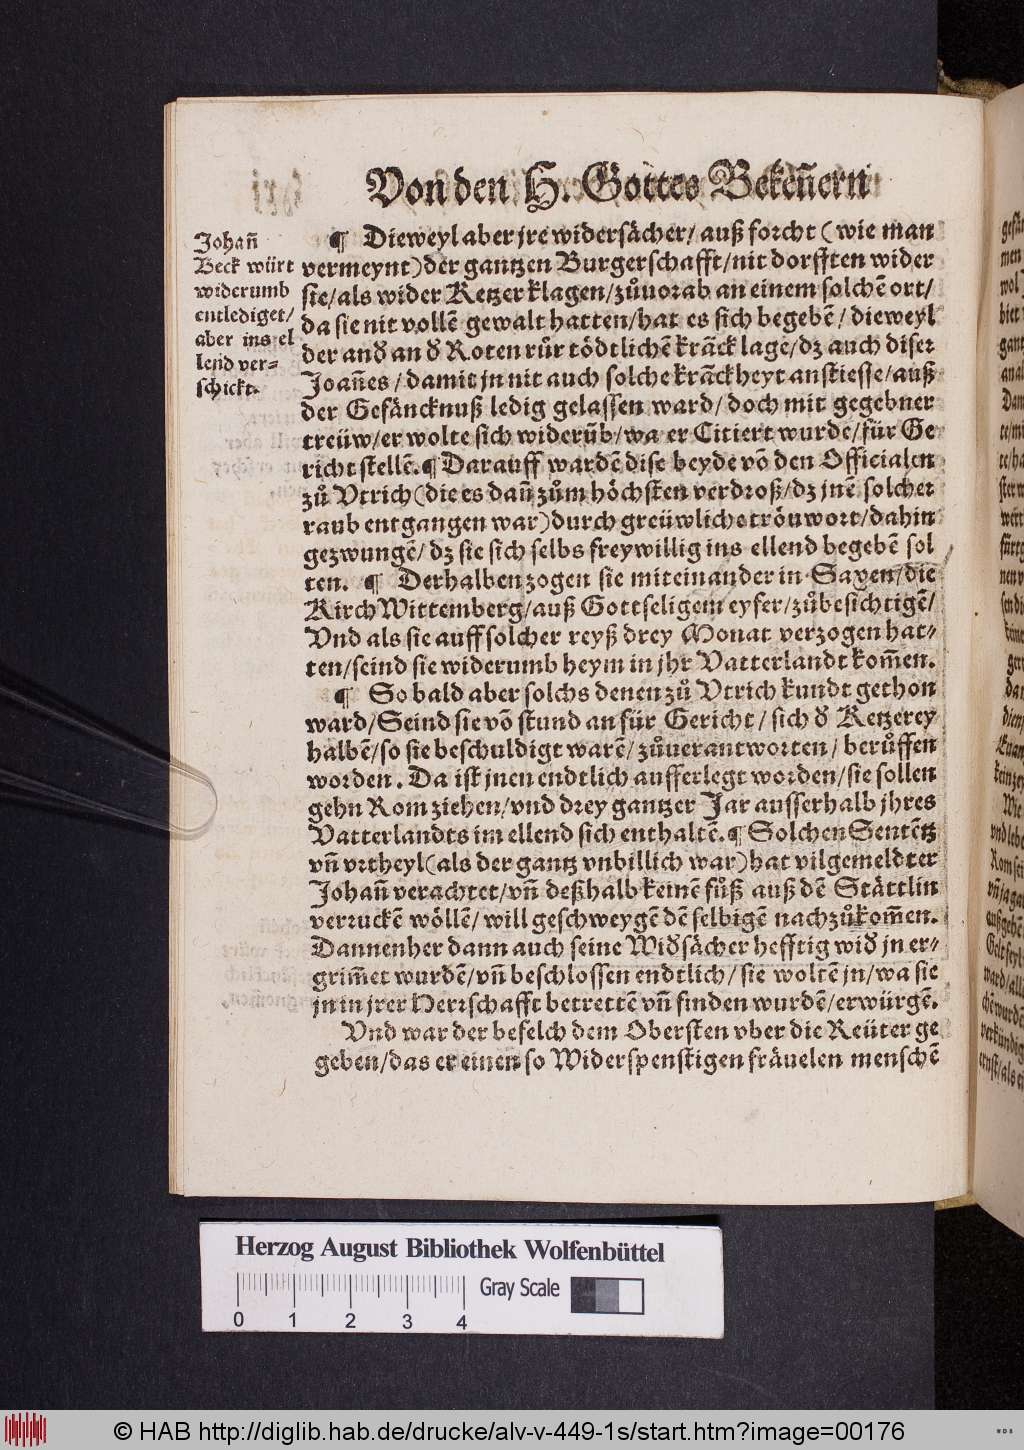 Von den H. Gottes Bekeñern
Johañ
Beck würt
widerumb
entlediget/
aber ins el
lend ver⸗
schickt.
¶ Dieweyl aber jre widersächer/ auß forcht ( wie man
vermeynt) der gantzen Burgerschafft/ nit dorfften wider
sie/ als wider Ketzer klagen/ zůuorab an einem solchẽ ort/
da sie nit vollẽ gewalt hatten/ hat es sich begebẽ/ dieweyl
der and̄ an d̄ Roten růr tödtlichẽ krãck lage/ dz auch diser
Joañes/ damit jn nit auch solche krãckheyt anstiesse/ auß
der Gefäncknuß ledig gelassen ward/ doch mit gegebner
treüw/ er wolte sich widerũb/ wa er Citiert wurde/ für Ge
richt stellẽ. ¶ Darauff wardẽ dise beyde võ den Officialen
zů Vtrich (die es dañ zům höchsten verdroß/ dz jnẽ solcher
raub entgangen war) durch greüwliche tröuwort/ dahin
gezwungẽ/ dz sie sich selbs freywillig ins ellend begebẽ sol
ten. ¶ Derhalben zogen sie miteinander in Saxen/ die
Kirch Wittemberg/ auß Gottseligem eyfer/ zůbesichtigẽ/
Vnd als sie auff solcher reyß drey Monat verzogen hat⸗
ten/ seind sie widerumb heym in jhr Vatterlandt kom̃en.
¶ So bald aber solchs denen zů Vtrich kundt gethon
ward/ Seind sie võ stund an für Gericht/ sich d̄ Ketzerey
halbẽ/ so sie beschuldigt warẽ/ zůuerantworten/ berůffen
worden. Da ist jnen endtlich aufferlegt worden/ sie sollen
gehn Rom ziehen/ vnd drey gantzer Jar ausserhalb jhres
Vatterlandts im ellend sich enthaltẽ. ¶ Solchen Sentẽtz
vñ vrtheyl (als der gantz vnbillich war) hat vilgemeldter
Johañ verachtet/ vñ deßhalb keinẽ fůß auß dẽ Stättlin
verruckẽ wöllẽ/ will geschweygẽ dẽ selbigẽ nachzůkom̃en.
Dannenher dann auch seine Wid̄sächer hefftig wid̄ jn er⸗
grim̃et wurdẽ/ vñ beschlossen endtlich/ sie woltẽ jn/ wa sie
jn in jrer Herrschafft betrettẽ vñ finden wurdẽ/ erwürgẽ.
Vnd war der befelch dem Obersten vber die Reüter ge
geben/ das er einen so Widerspenstigen fräuelen menschẽ
Herzog August Bibliothek Wolfenbüttel
Gray Scale
0 1 2 3 4
© HAB http://diglib.hab.de/drucke/alv-v-449-1s/start.htm?image=00176